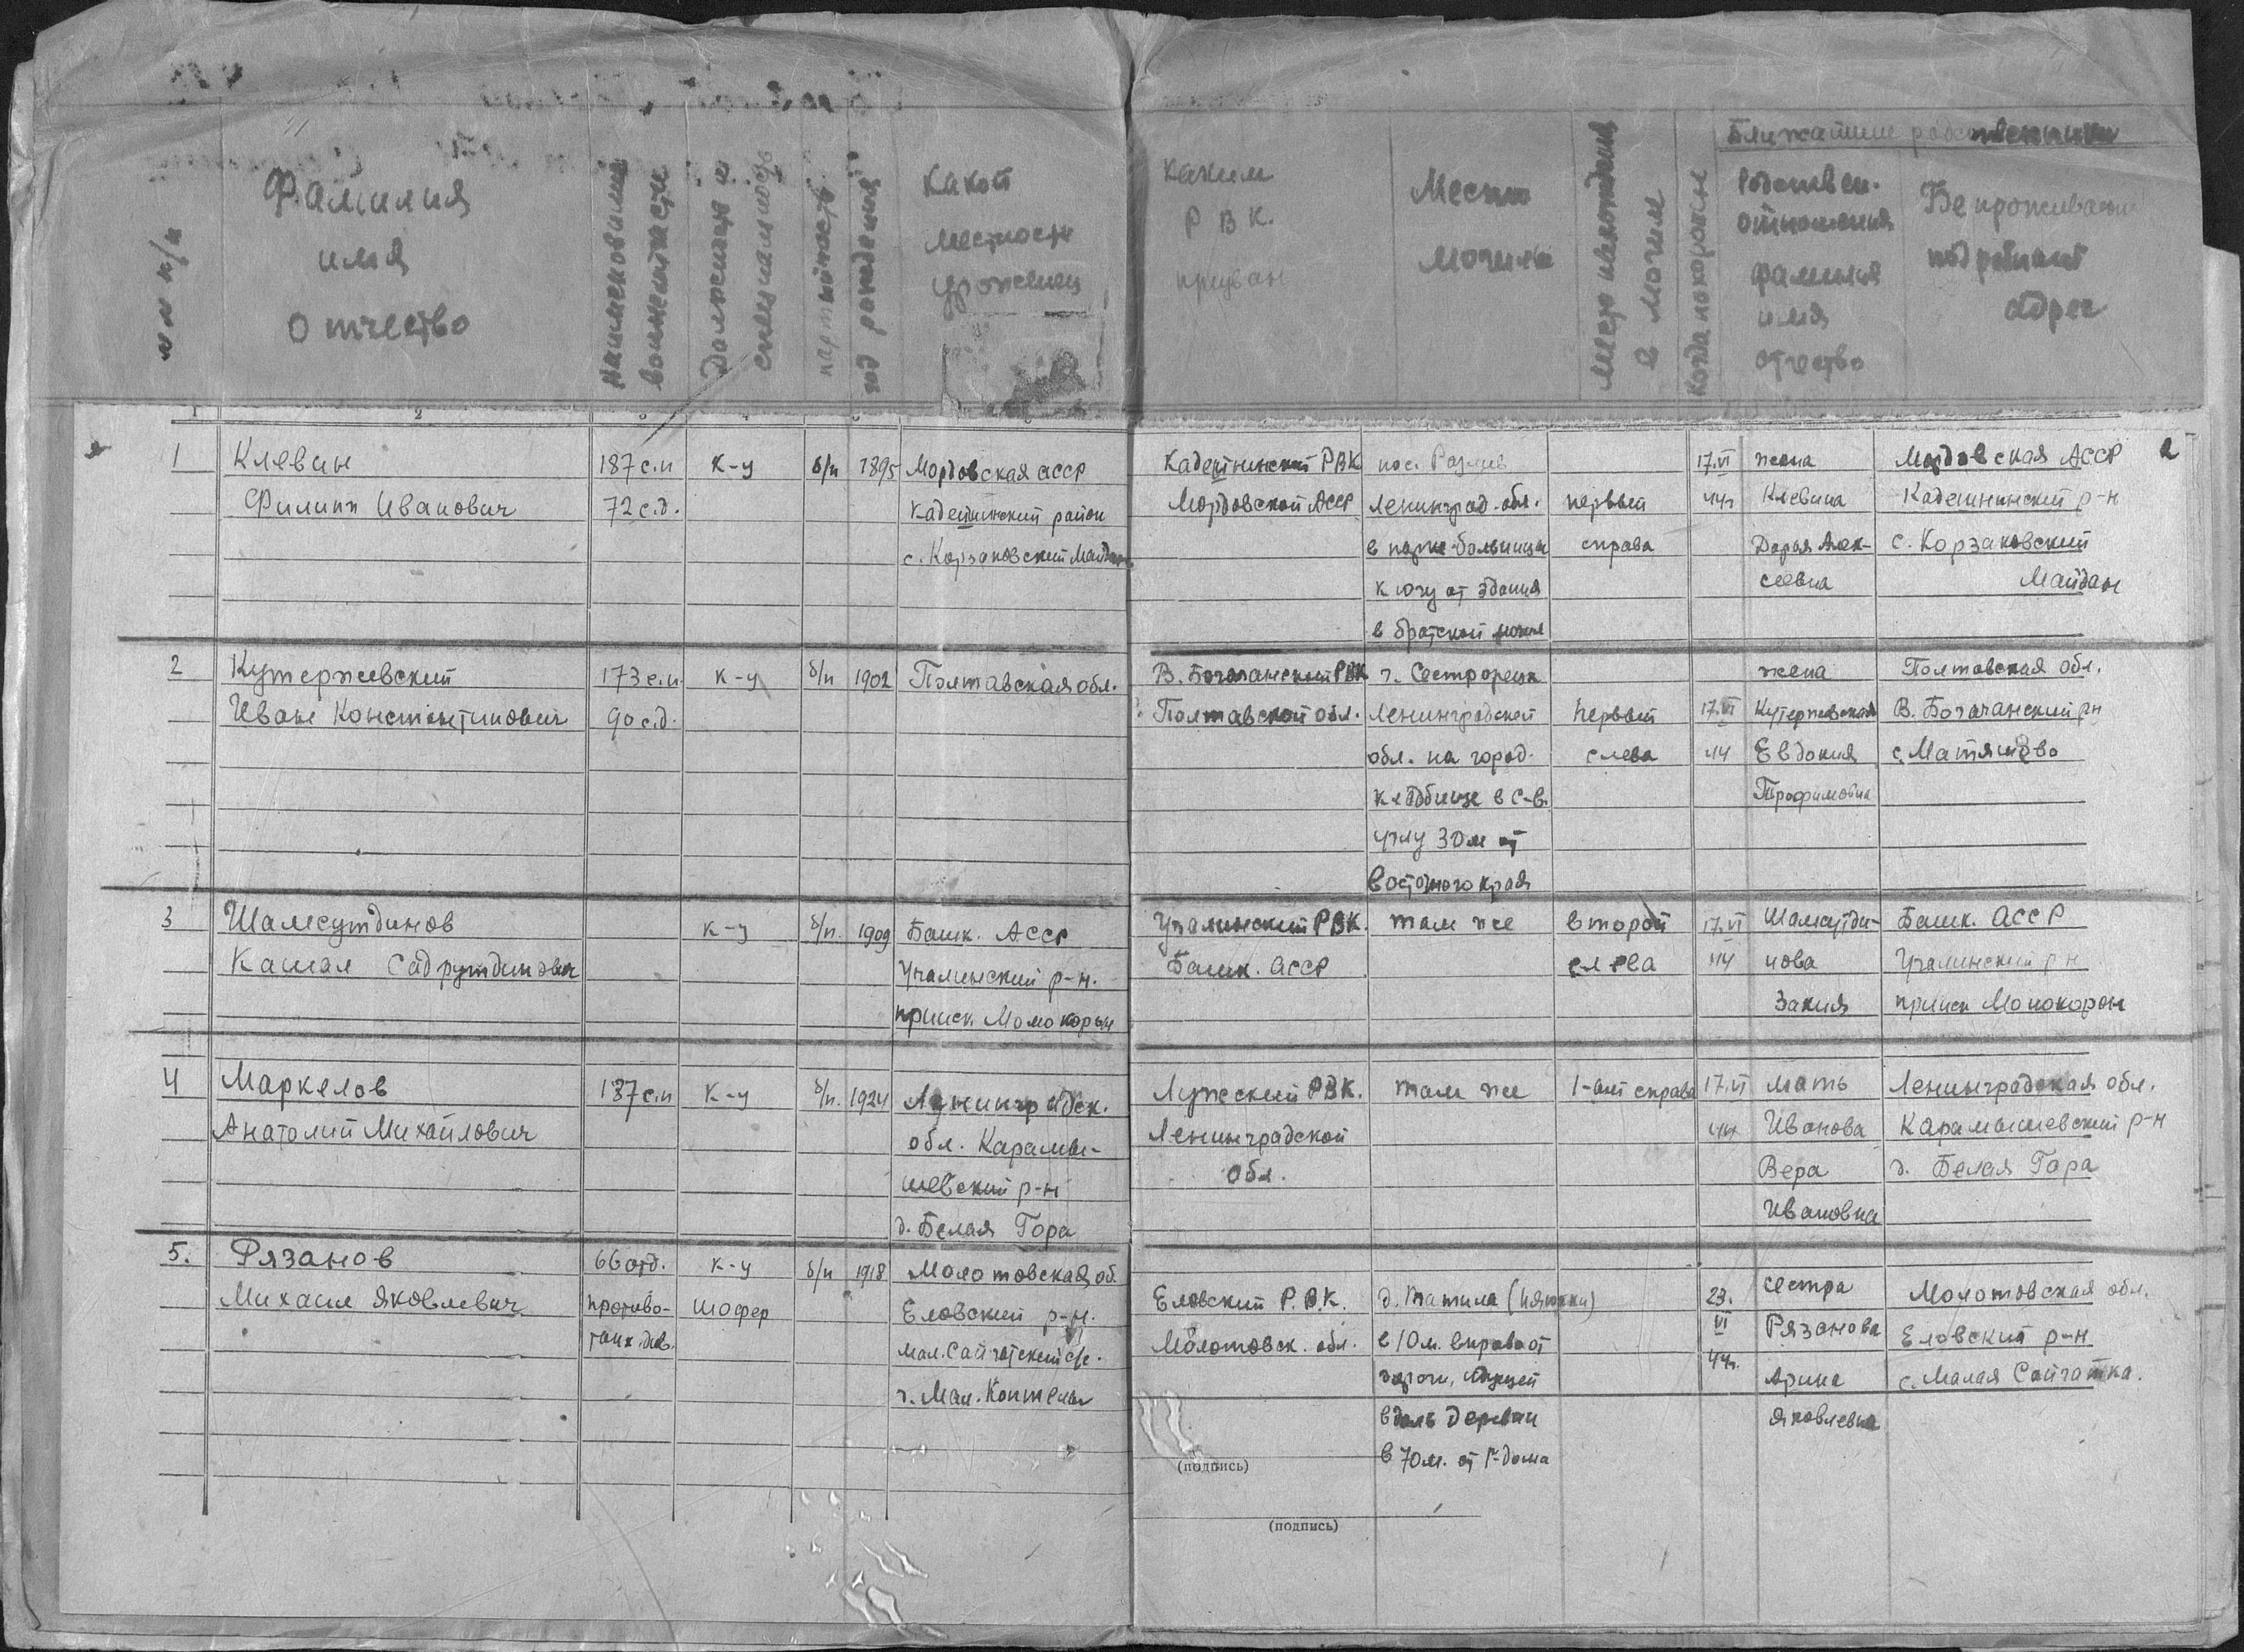 №№ п/п
Фамилия
имя
отчество
Наименование
воинской части
Должность и
специальность
партийность
год рождения
Какой
местности
уроженец
Каким
Р В К.
призван
Место
могилы
Место нахождения
в могиле
Когда похоронен
Ближайшие родственники
Родствен.
отношения
фамилия
имя
отчество
Где проживают
подробный
адрес
1 2
1 Клевин 187 с.п К-у б/п 1895 Мордовская АССР
Филипп Иванович 72 с.д. Кадошкинский район
с. Корзаковский Майдан
Кадошкинский РВК пос. Разлив 17.VI жена Мордовская АССР 2
Мордовской АССР Ленинград. обл. первый 44г Клевина Кадошкинский р-н
в парке больницы справа Дарья Алек- с. Корзаковский
к югу от здания сеевна Майдан
в братской могиле
2 Кутержевский 173 с.п. К-у б/п 1902 Полтавская обл.
Иван Константинович 90 с.д.
В. Богачанский РВК г. Сестрорецк жена Полтавская обл.
Полтавской обл. Ленинградской первый 17.VI Кутержевская В. Богачанский рн
обл. на город. слева 44 Евдокия с. Матяшово
кладбище в С-в. Трофимовна
углу 30м от
восточного края
3 Шамсутдинов К-у б/п. 1909 Башк. АССР
Камал Садрутдинович Учалинский р-н.
прииск
Учалинский РВК. там же второй 17.VI Шамсутди- Башк. АССР
Башк. АССР слева 44 нова Учалинский р-н
Закия прииск
4 Маркелов 187 с.п К-у б/п. 1924 Ленинградск.
Анатолий Михайлович обл. Карамы-
шевский р-н
д. Белая Гора
Лужский РВК. там же 1-ый справа 17.VI мать Ленинградская обл.
Ленинградской 44 Иванова Карамышевский р-н
Обл. Вера д. Белая Гора
Ивановна
5. Рязанов 66 отд. К-у б/п 1918 Молотовская об.
Михаил Яковлевич противо- шофер Еловский р-н.
танк. див. мал. Сайгатский с/с.
Мал.
Еловский Р.В.К. 23. сестра Молотовская обл.
Молотовск. обл. в 10м. вправо от VI Рязанова Еловский р-н
дороги, идущей 44г. Арина с. Малая Сайгатка.
вдоль деревни Яковлевна
в 70м. от 1-дома
(подпись)
(подпись)